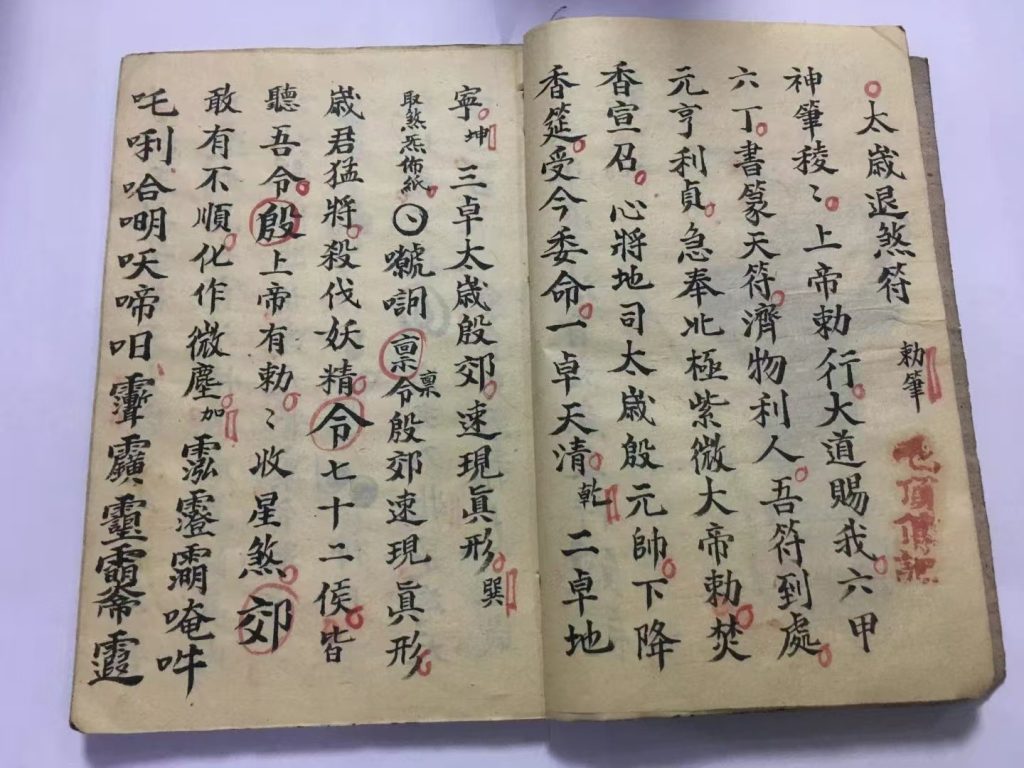 太歲退煞符 勅筆
神筆稜〻上帝勅行大道賜我六甲
六丁書篆天符濟物利人吾符到處
元亨利貞急奉北極紫微大帝勅焚
香宣召心將地司太歲殷元帥下降
香筵受今委命一卓天清乾二卓地
寧坤三卓太歲殷郊速現眞形巽
取煞炁佈紙 稟 稟 令殷郊速現眞形
歲君猛將殺伐妖精令七十二侯皆
聽吾令殷上帝有勅〻收星煞郊
敢有不順化作微塵加 唵吽
吒唎哈 啼